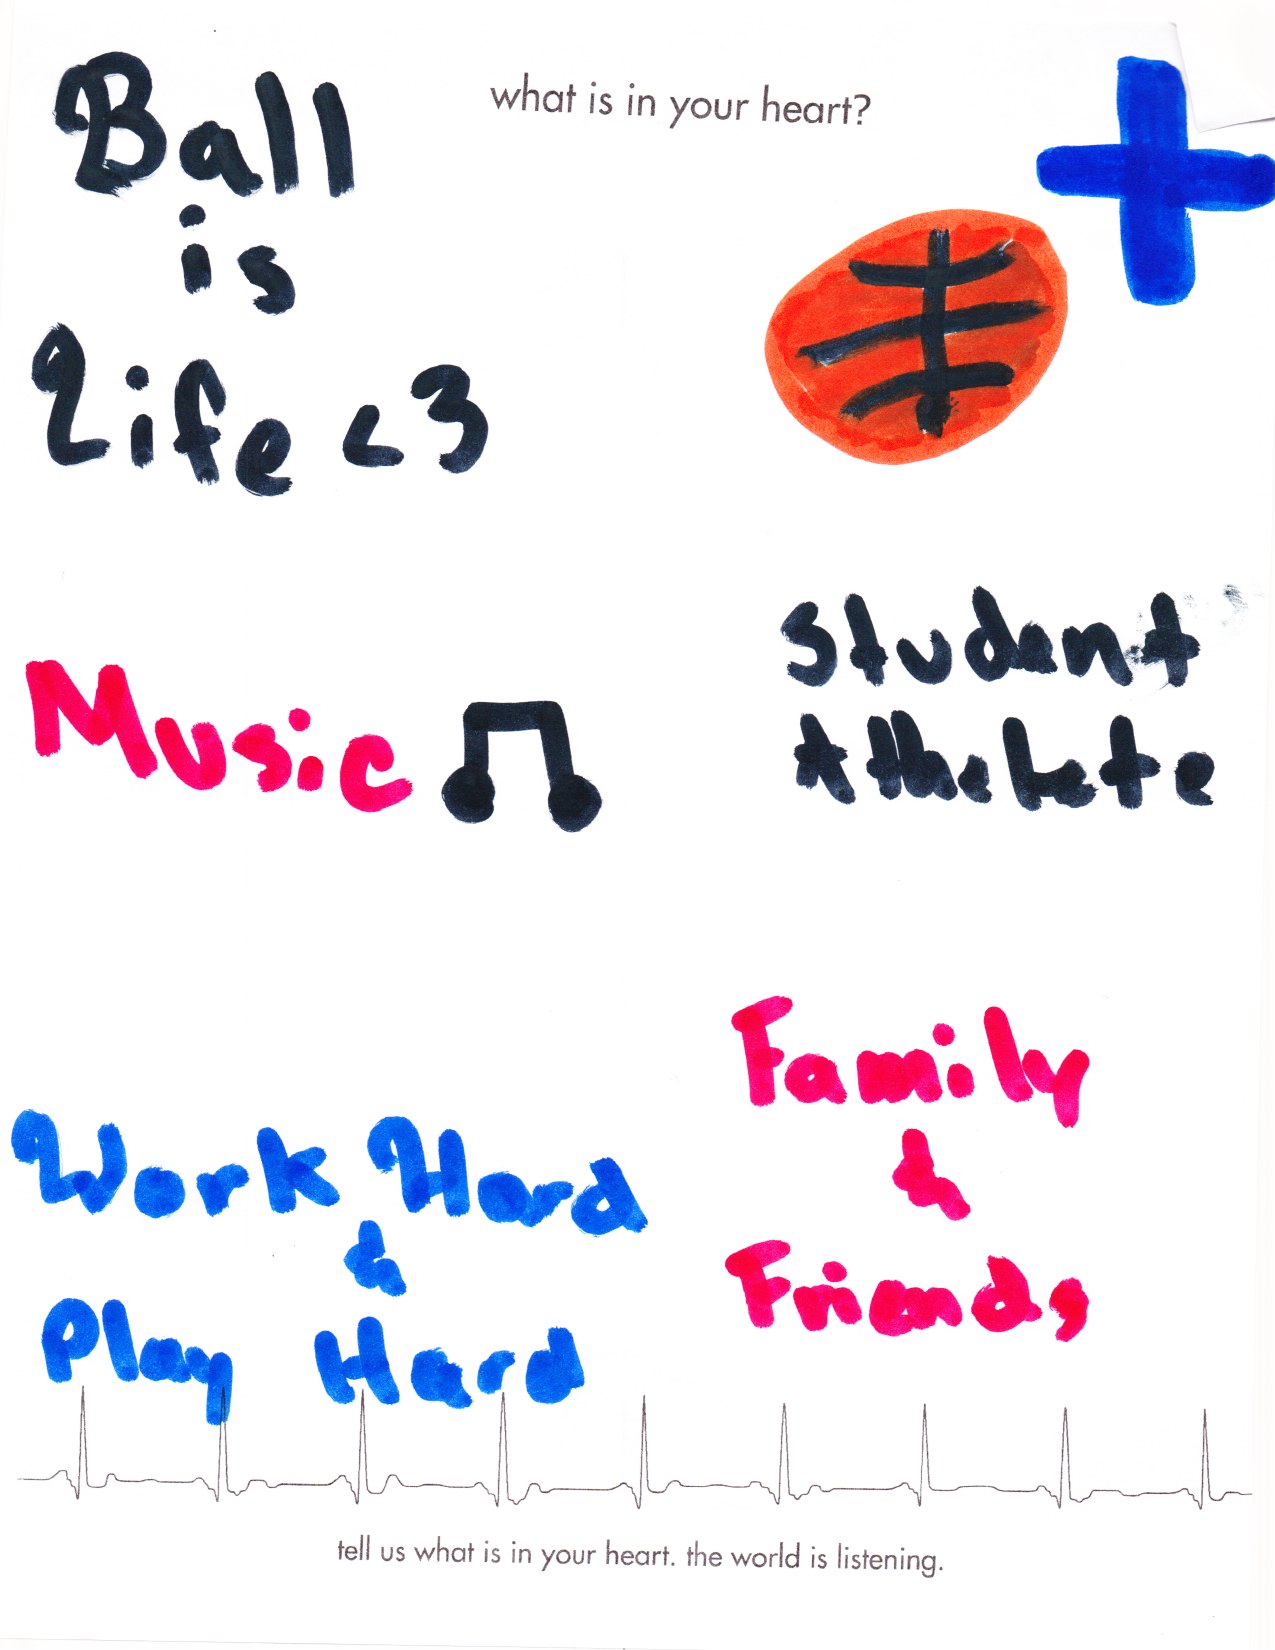 what is in your heart?
Ball
is
Life <3
Student
Athelete
Music
Family
&
Friends
Work Hard
&
Play Hard
tell us what is in your heart. the world is listening.